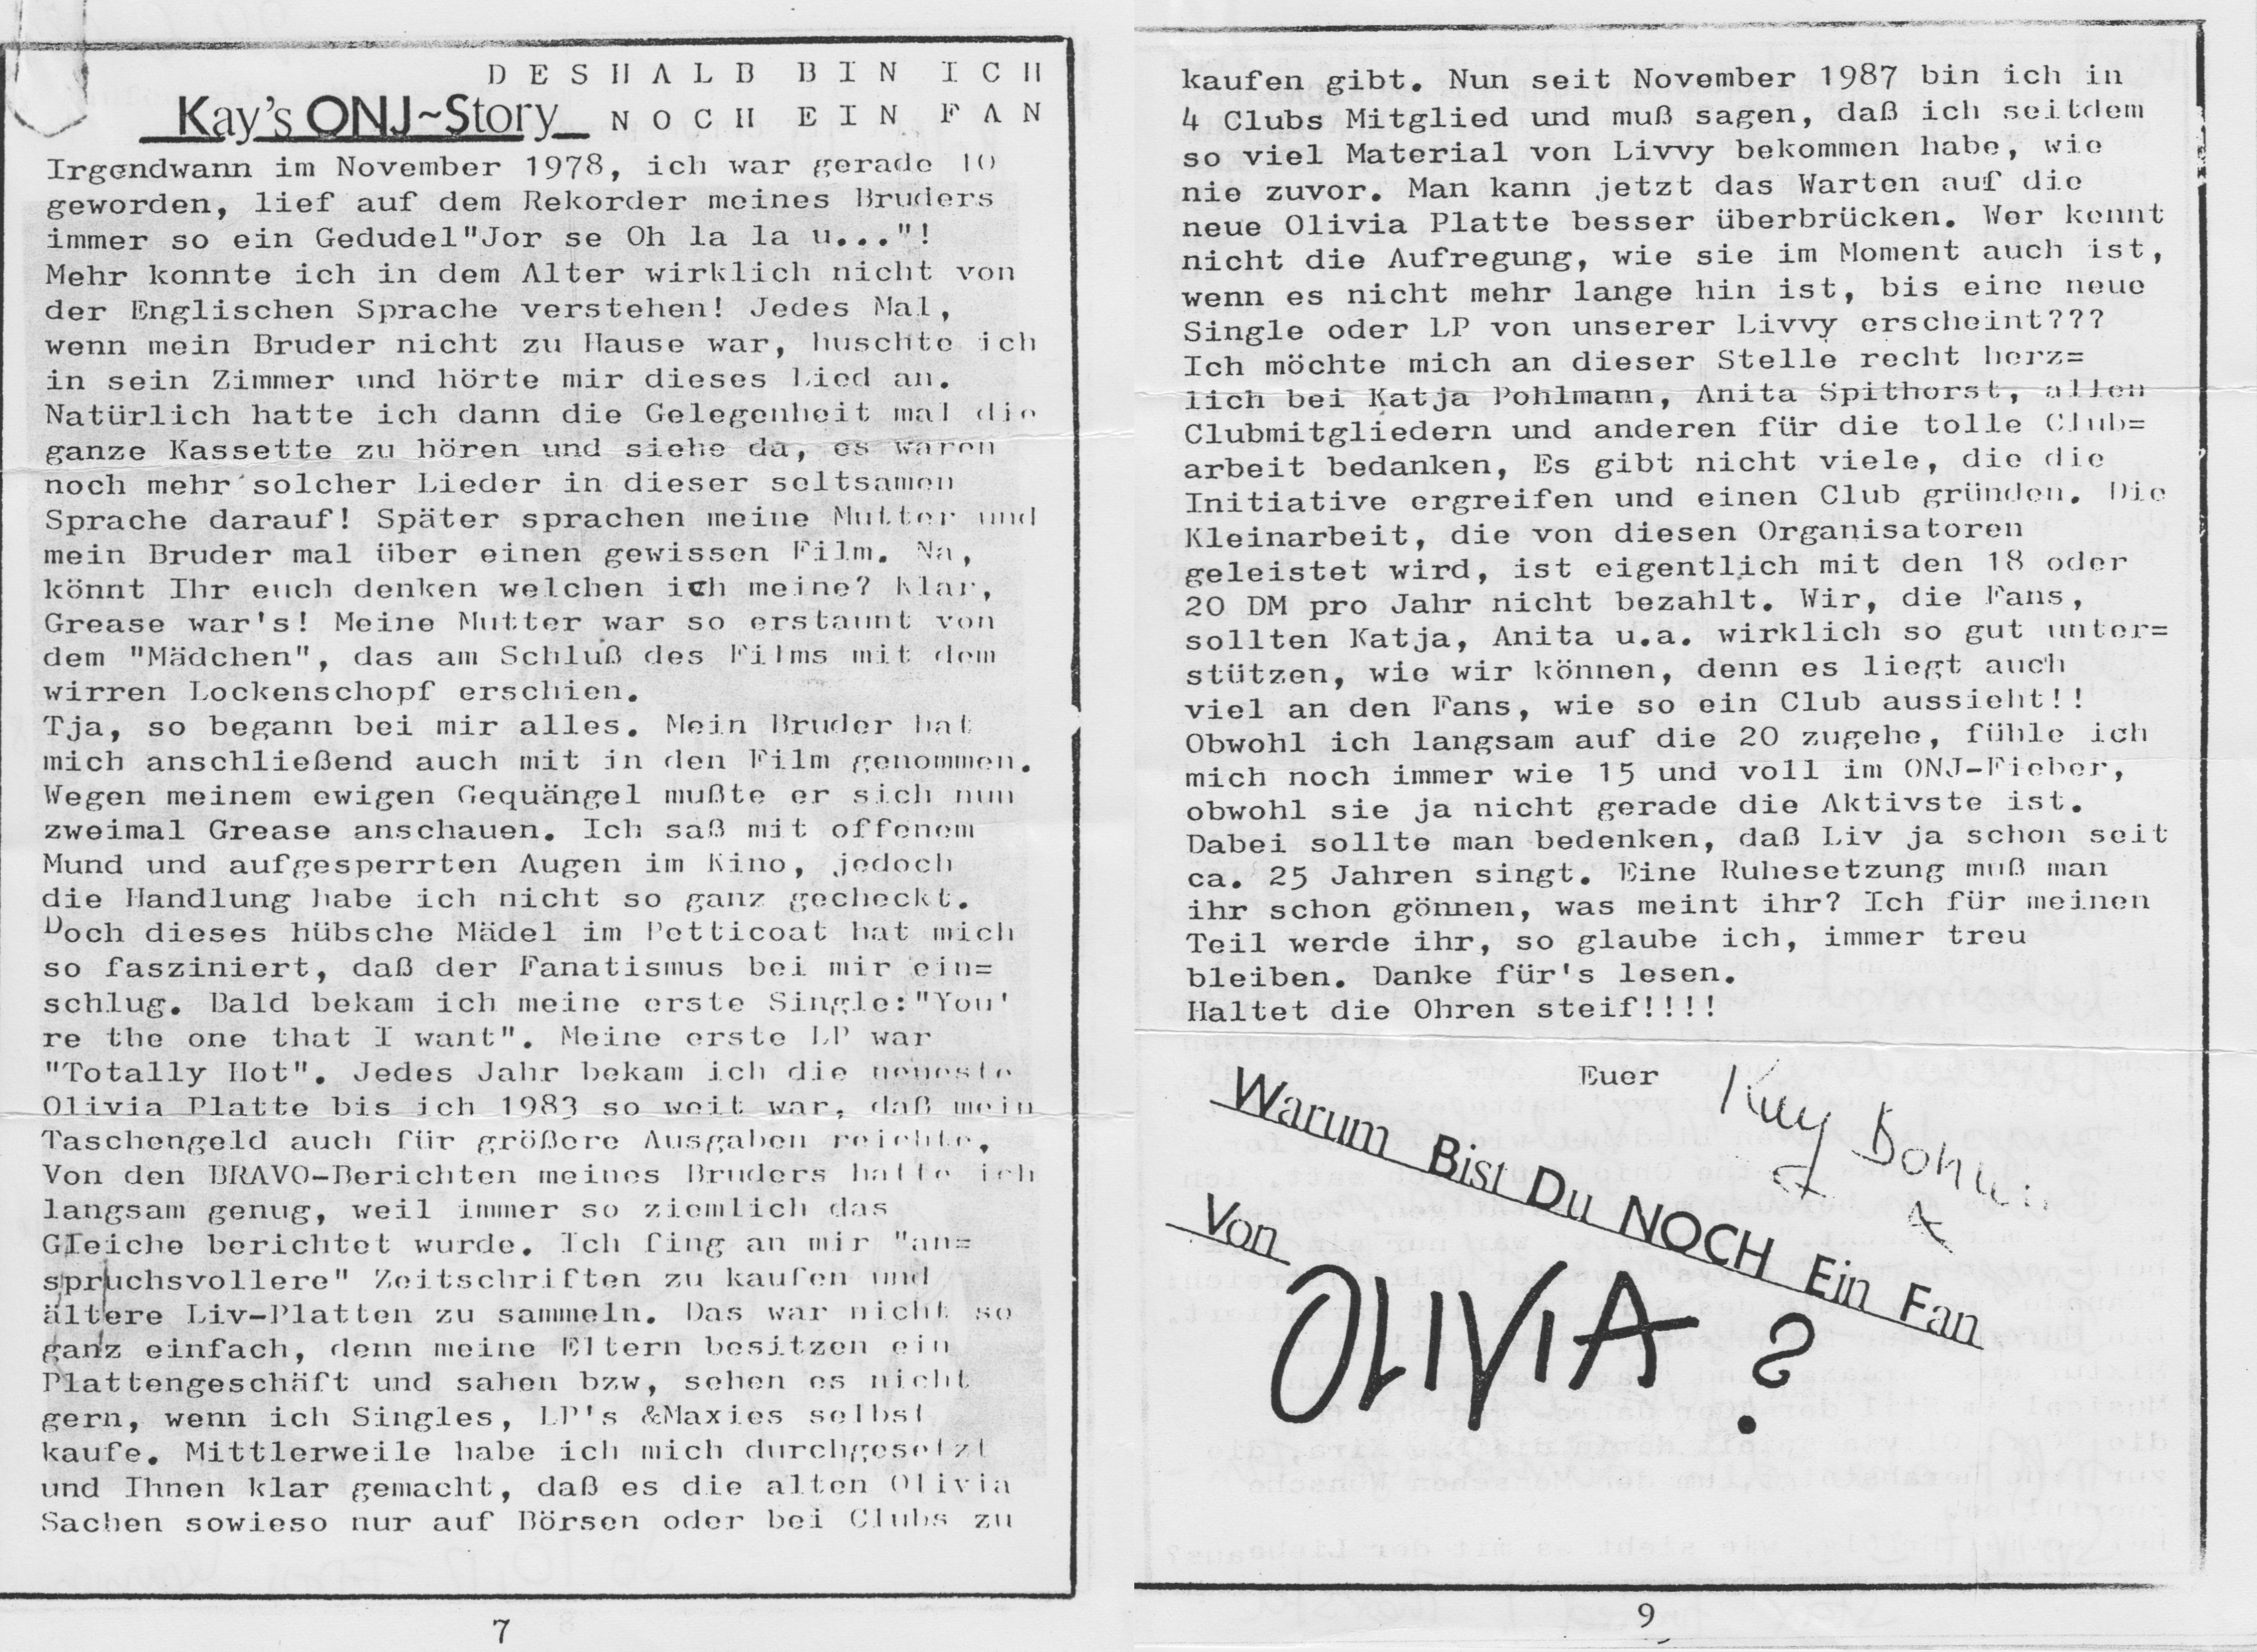 DESHALB BIN ICH
Kay's ONJ~Story NOCH EIN FAN
Irgendwann im November 1978, ich war gerade 10
geworden, lief auf dem Rekorder meines Bruders
immer so ein Gedudel"Jor se Oh la la u..."!
Mehr konnte ich in dem Alter wirklich nicht von
der Englischen Sprache verstehen! Jedes Mal,
wenn mein Bruder nicht zu Hause war, huschte ich
in sein Zimmer und hörte mir dieses Lied an.
Natürlich hatte ich dann die Gelegenheit mal die
ganze Kassette zu hören und siehe da, es waren
noch mehr solcher Lieder in dieser seltsamen
Sprache darauf! Später sprachen meine Mutter und
mein Bruder mal über einen gewissen Film. Na,
könnt Ihr euch denken welchen ich meine? Klar,
Grease war's! Meine Mutter war so erstaunt von
dem "Mädchen", das am Schluß des Films mit dem
wirren Lockenschopf erschien.
Tja, so begann bei mir alles. Mein Bruder hat
mich anschließend auch mit in den Film genommen.
Wegen meinem ewigen Gequängel mußte er sich nun
zweimal Grease anschauen. Ich saß mit offenem
Mund und aufgesperrten Augen im Kino, jedoch
die Handlung habe ich nicht so ganz gecheckt.
Doch dieses hübsche Mädel im Petticoat hat mich
so fasziniert, daß der Fanatismus bei mir ein=
schlug. Bald bekam ich meine erste Single:"You'
re the one that I want". Meine erste LP war
"Totally Hot". Jedes Jahr bekam ich die neueste
Olivia Platte bis ich 1983 so weit war, daß mein
Taschengeld auch für größere Ausgaben reichte.
Von den BRAVO-Berichten meines Bruders hatte ich
langsam genug, weil immer so ziemlich das
Gleiche berichtet wurde. Ich fing an mir "an=
spruchsvollere" Zeitschriften zu kaufen und
ältere Liv-Platten zu sammeln. Das war nicht so
ganz einfach, denn meine Eltern besitzen ein
Plattengeschäft und sahen bzw, sehen es nicht
gern, wenn ich Singles, LP's &Maxies selbst
kaufe. Mittlerweile habe ich mich durchgesetzt
und Ihnen klar gemacht, daß es die alten Olivia
Sachen sowieso nur auf Börsen oder bei Clubs zu
7
kaufen gibt. Nun seit November 1987 bin ich in
4 Clubs Mitglied und muß sagen, daß ich seitdem
so viel Material von Livvy bekommen habe, wie
nie zuvor. Man kann jetzt das Warten auf die
neue Olivia Platte besser überbrücken. Wer kennt
nicht die Aufregung, wie sie im Moment auch ist,
wenn es nicht mehr lange hin ist, bis eine neue
Single oder LP von unserer Livvy erscheint???
Ich möchte mich an dieser Stelle recht herz=
lich bei Katja Pohlmann, Anita Spithorst, allen
Clubmitgliedern und anderen für die tolle Club=
arbeit bedanken, Es gibt nicht viele, die die
Initiative ergreifen und einen Club gründen. Die
Kleinarbeit, die von diesen Organisatoren
geleistet wird, ist eigentlich mit den 18 oder
20 DM pro Jahr nicht bezahlt. Wir, die Fans,
sollten Katja, Anita u.a. wirklich so gut unter=
stützen, wie wir können, denn es liegt auch
viel an den Fans, wie so ein Club aussieht!!
Obwohl ich langsam auf die 20 zugehe, fühle ich
mich noch immer wie 15 und voll im ONJ-Fieber,
obwohl sie ja nicht gerade die Aktivste ist.
Dabei sollte man bedenken, daß Liv ja schon seit
ca. 25 Jahren singt. Eine Ruhesetzung muß man
ihr schon gönnen, was meint ihr? Ich für meinen
Teil werde ihr, so glaube ich, immer treu
bleiben. Danke für's lesen.
Haltet die Ohren steif!!!!
Euer Kay
Warum Bist Du NOCH Ein Fan
Von
OLIVIA ?
9